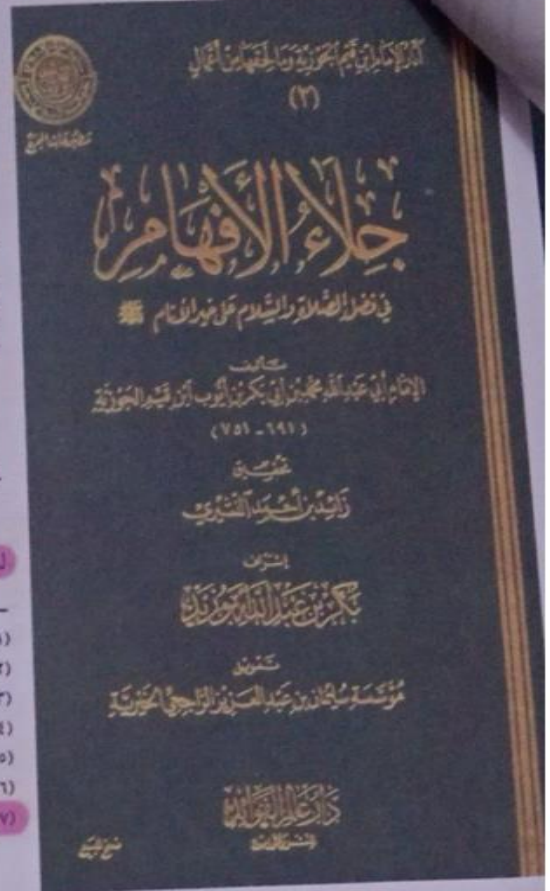 آثار الإمام ابن قيم الجوزية وما لحقها من أعمال
(٢)
مطبوعات المجمع
جلاء الأفهام
في فضل الصلاة والسلام على خير الأنام ﷺ
تأليف
الإمام أبي عبد الله محمد بن أبي بكر بن أيوب ابن قيم الجوزية
(٦٩١ - ٧٥١)
تحقيق
زائد بن أحمد النشيري
إشراف
بكر بن عبد الله أبو زيد
تمويل
مؤسسة سليمان بن عبد العزيز الراجحي الخيرية
دار عالم الفوائد
للنشر والتوزيع